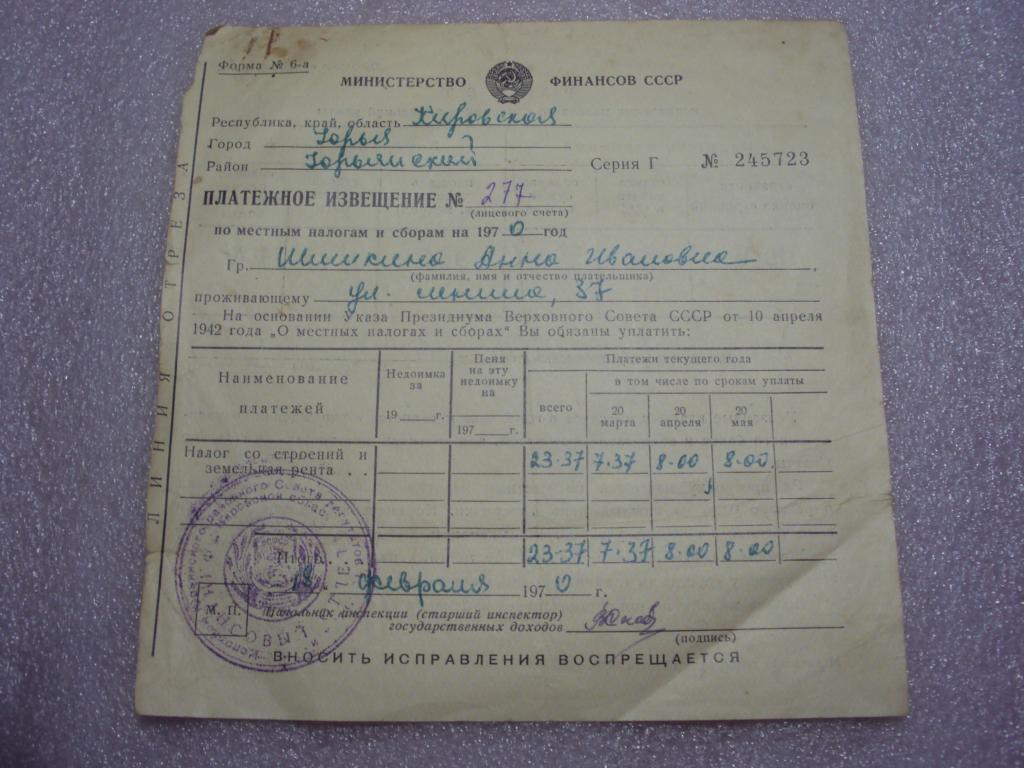 Форма № 6-а
МИНИСТЕРСТВО ФИНАНСОВ СССР
Республика, край, область Кировская
Город Юрья
Район Юрьянский Серия Г № 245723
ПЛАТЕЖНОЕ ИЗВЕЩЕНИЕ № 277
(лицевого счета)
по местным налогам и сборам на 1970 год
Гр. Шишкина Анна Ивановна,
(фамилия, имя и отчество плательщика)
проживающему ул. Ленина, 37
На основании Указа Президиума Верховного Совета СССР от 10 апреля
1942 года „О местных налогах и сборах" Вы обязаны уплатить:
Наименование платежей
Недоимка за 19 г.
Пеня на эту недоимку на 197 г.
Платежи текущего года
всего
в том числе по срокам уплаты
20 марта 20 апреля 20 мая
Налог со строений и
земельная рента 23-37 7-37 8-00 8-00
Итого 23-37 7-37 8-00 8-00
18 февраля 1970 г.
М. П. Начальник инспекции (старший инспектор)
государственных доходов
(подпись)
ВНОСИТЬ ИСПРАВЛЕНИЯ ВОСПРЕЩАЕТСЯ
ЛИНИЯ ОТРЕЗА
районного Совета депутатов
Кировской